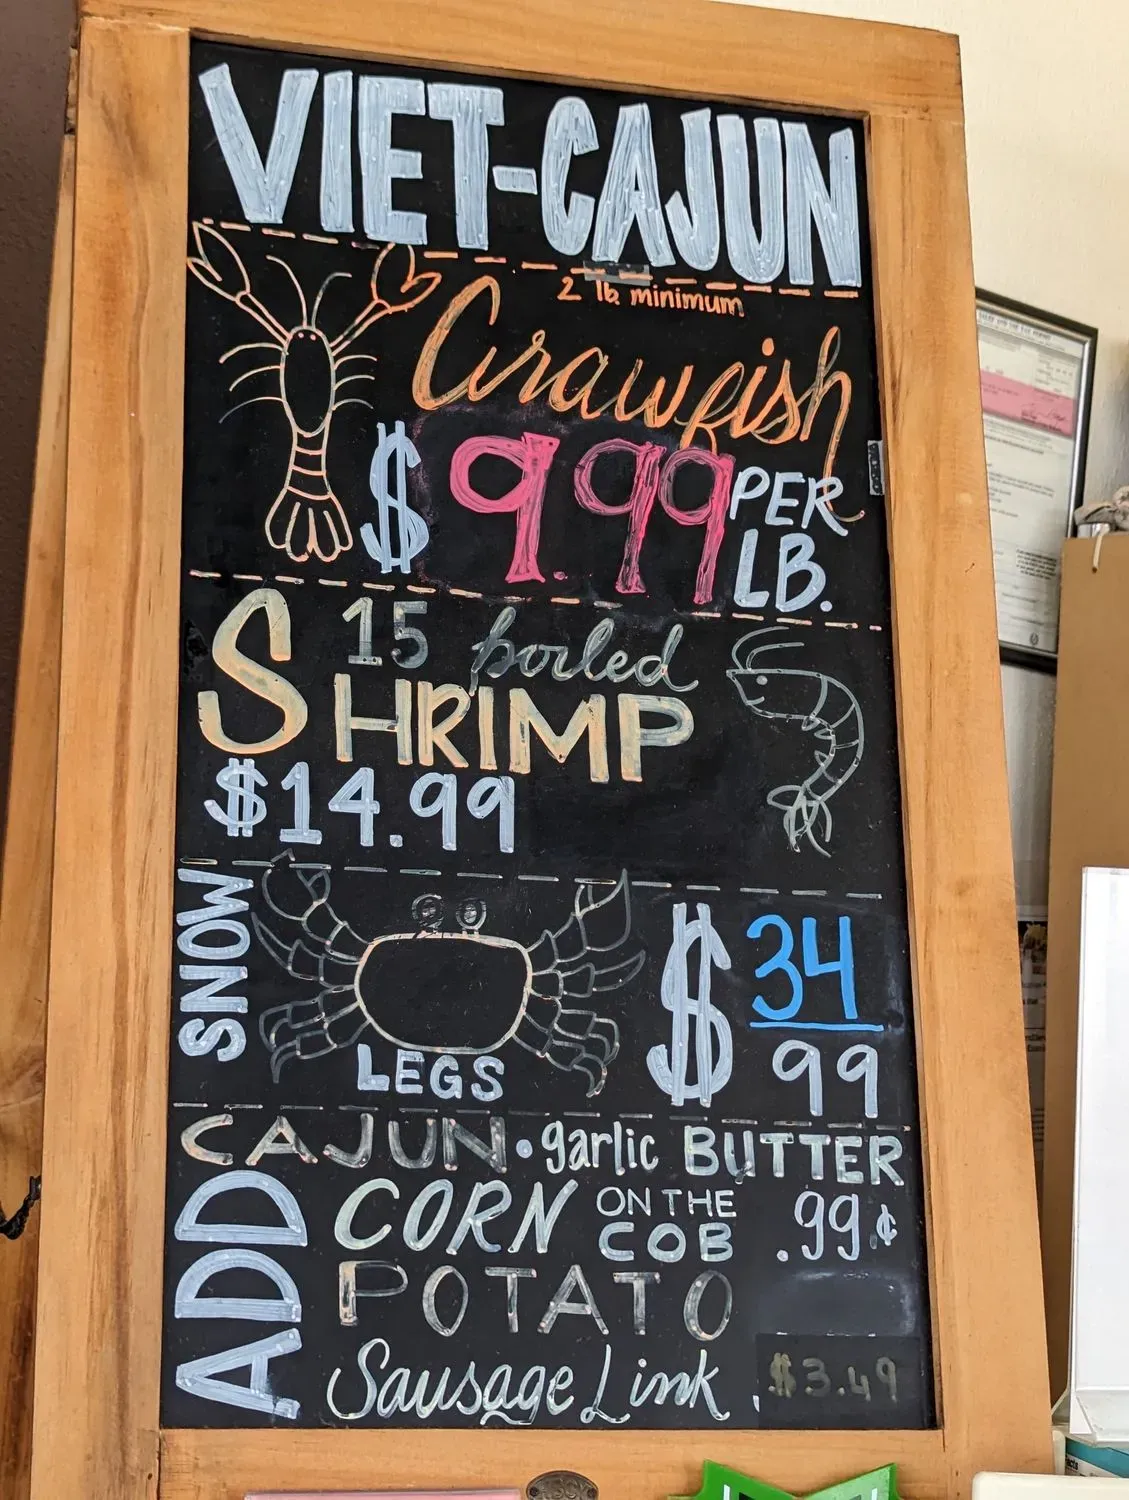 VIET-CAJUN
2 lb minimum
Crawfish
$ 9.99 PER LB.
15 boiled
SHRIMP
$14.99
SNOW
LEGS
$ 34 99
CAJUN • garlic BUTTER
ADD
CORN ON THE COB .99¢
POTATO
Sausage Link $3.49